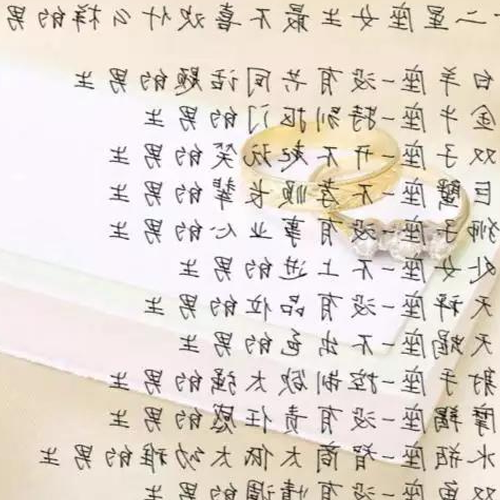 二星座女生最不喜欢什么样的男
白羊座-没有共同话题的男生
金牛座-特别抠门的男生
双子座-开不起玩笑的男生
巨蟹座-不孝顺长辈的男生
狮子座-没有事业心的男生
处女座-不上进的男生
天秤座-没有品位的男生
天蝎座-不出色的男生
射手座-控制欲太强的男生
摩羯座-没有责任感的男生
水瓶座-智商太低太幼稚的男生
双鱼座-没有情调的男生